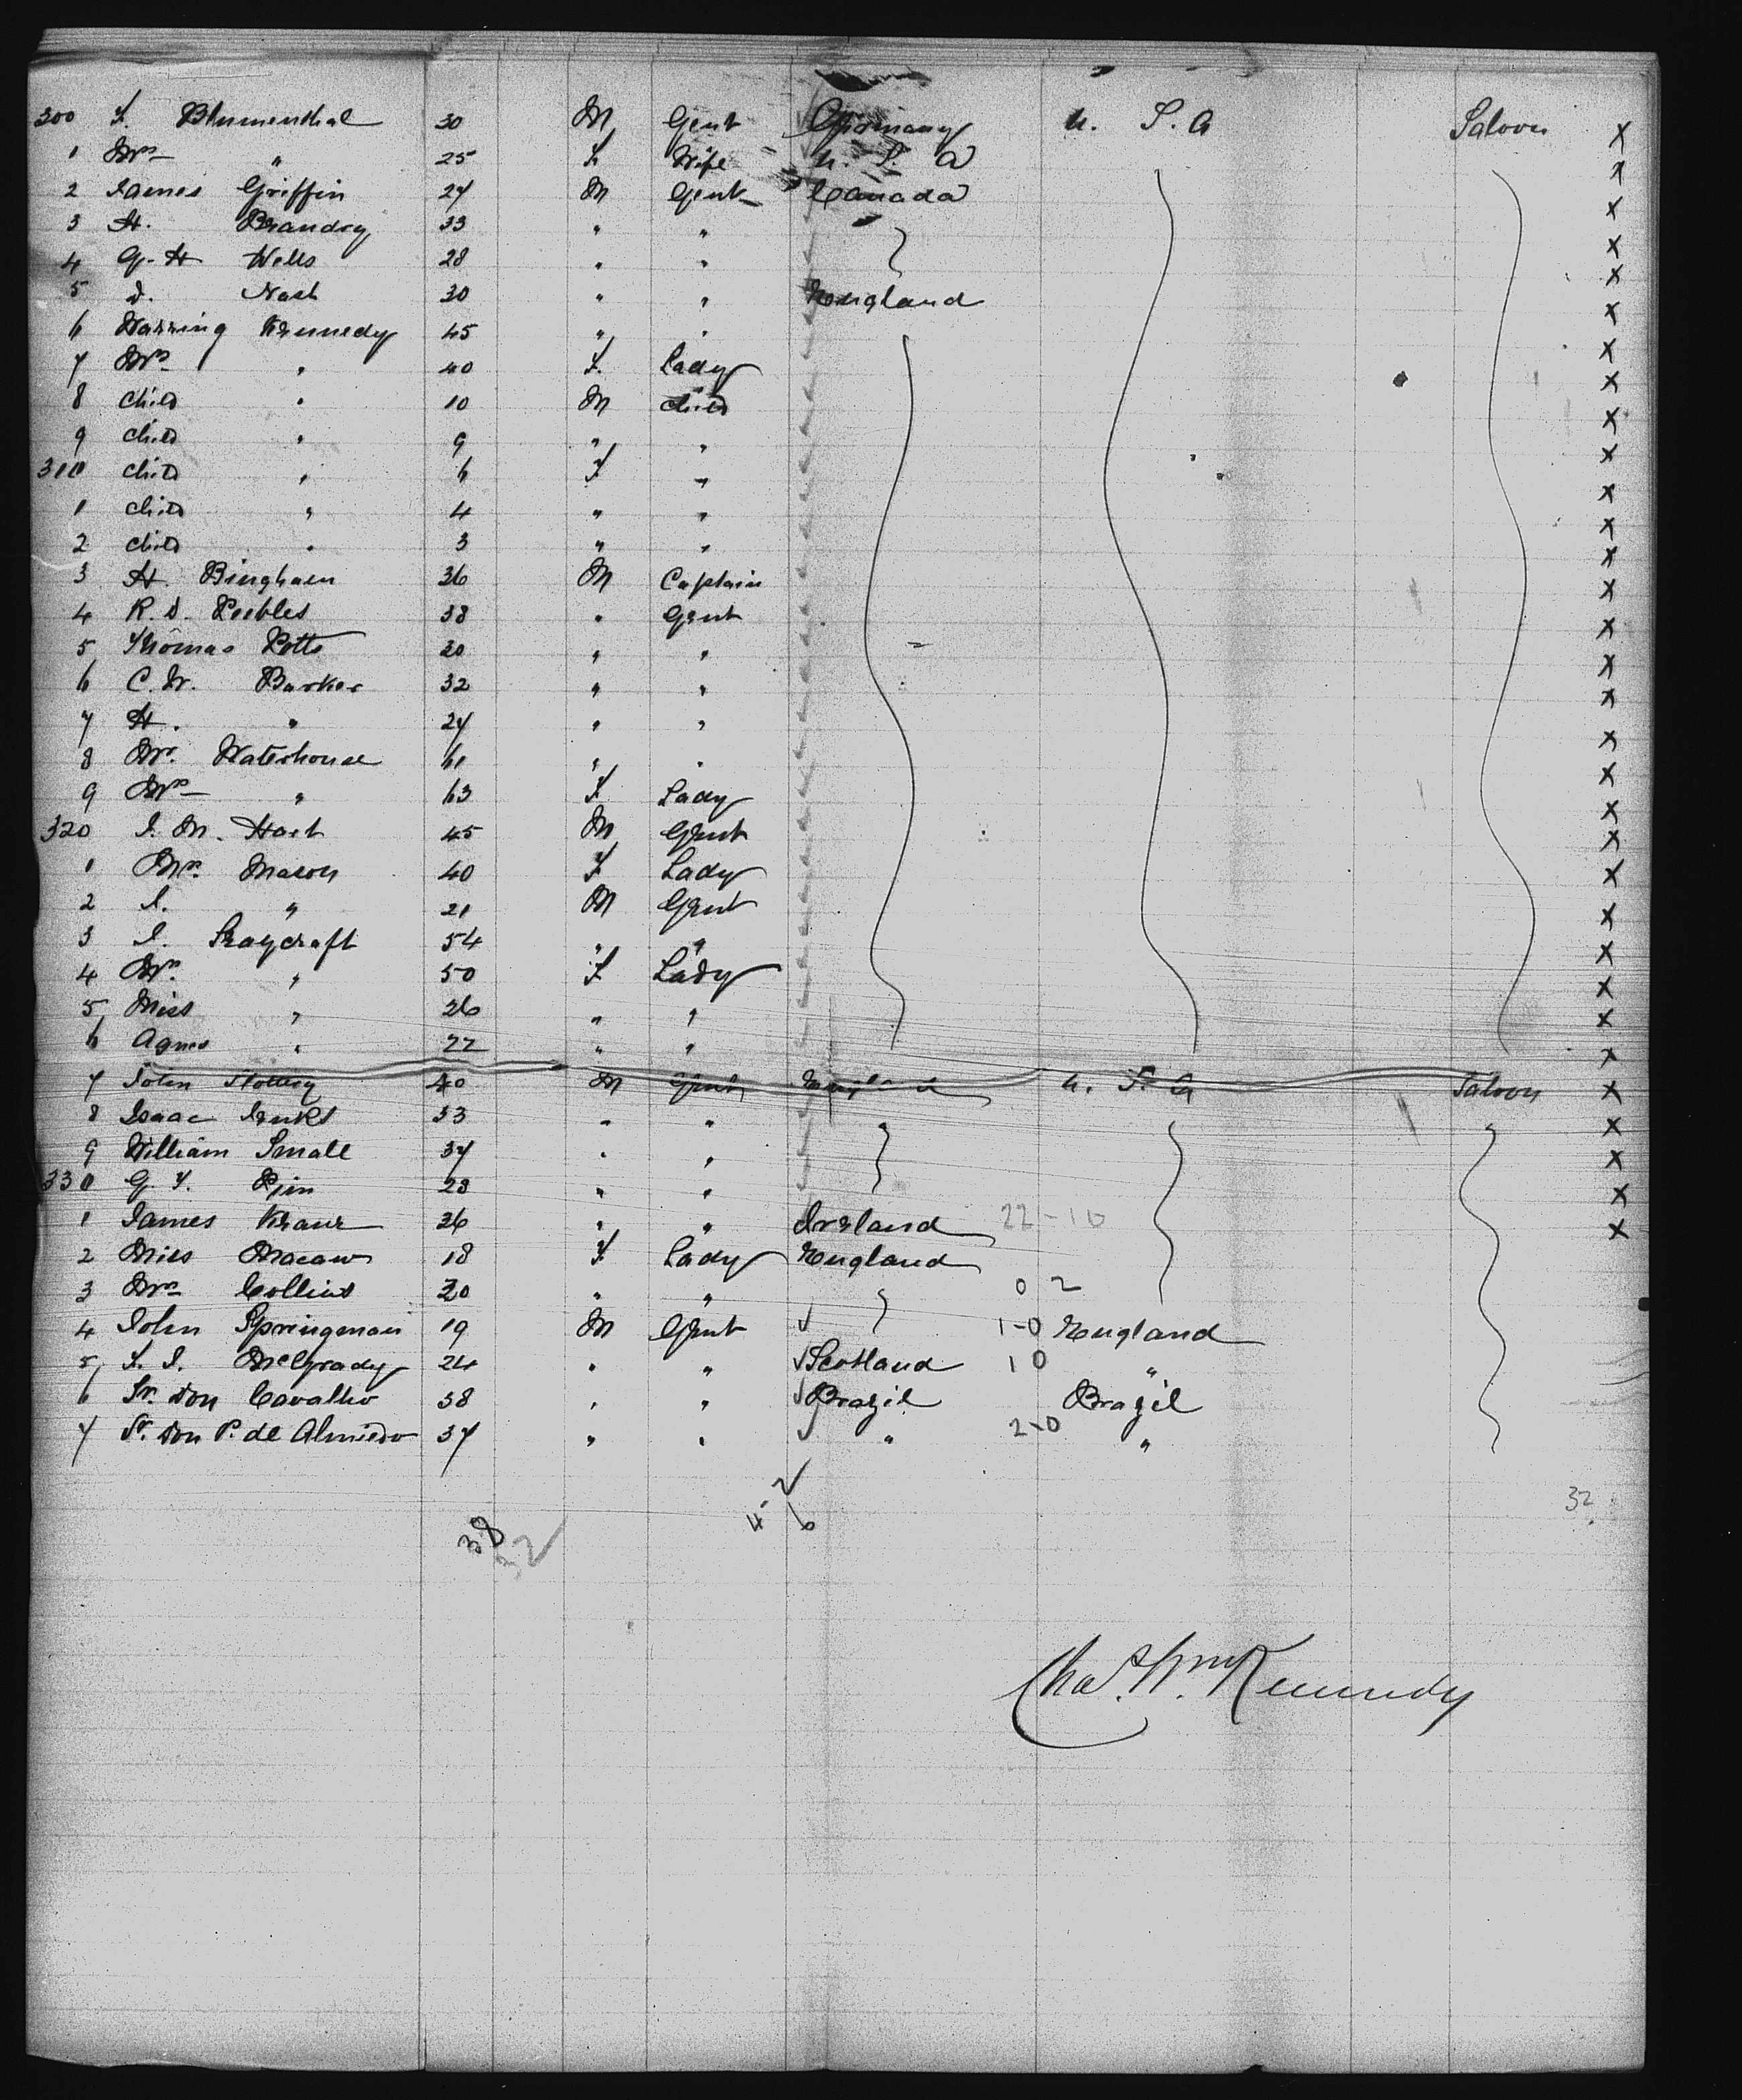 300 F. Blumenthal 30 M Gent Germany U. S. A Saloon X
1 Mrs " 25 F. Wife U. S. A X
2 James Griffin 27 M Gent Canada X
3 H. 33 " " X
4 G. H Wells 28 " " X
5 J. Nash 30 " " England X
6 Warring Kennedy 45 " " X
7 Mrs " 40 F. Lady X
8 child " 10 M child X
9 child " 9 " " X
310 child " 6 F " X
1 child " 4 " " X
2 child " 3 " " X
3 H. Bingham 36 M Captain X
4 R. D. Peebles 38 " Gent X
5 Thomas Potts 20 " " X
6 C. W. Barker 32 " " X
7 H. " 27 " " X
8 Mr. Waterhouse 61 " " X
9 Mrs " 63 F Lady X
320 J. M. Hart 45 M Gent X
1 Mrs. Mason 40 F Lady X
2 J. " 21 M Gent X
3 J. Praycraft 54 " " X
4 Mrs. " 50 F Lady X
5 Miss " 26 " " X
6 Agnes " 22 " " X
7 John 40 M Gent England U. S. A Saloon X
8 Isaac 33 " " " X
9 William Small 37 " " X
330 G. F. Pim 28 " " X
1 James 26 " " Ireland 22-10 X
2 Miss Macaw 18 F Lady England
3 Mrs Collins 20 " " 0 2
4 John Springman 19 M Gent 1-0 England
5 F. J. McGrady 24 " " Scotland 10 "
6 Sr. Don Cavalho 38 " " Brazil Brazil
7 Sr. Don P. de Almiedo 37 " " " 2-0 "
32
38
Chas. Wm Kennedy